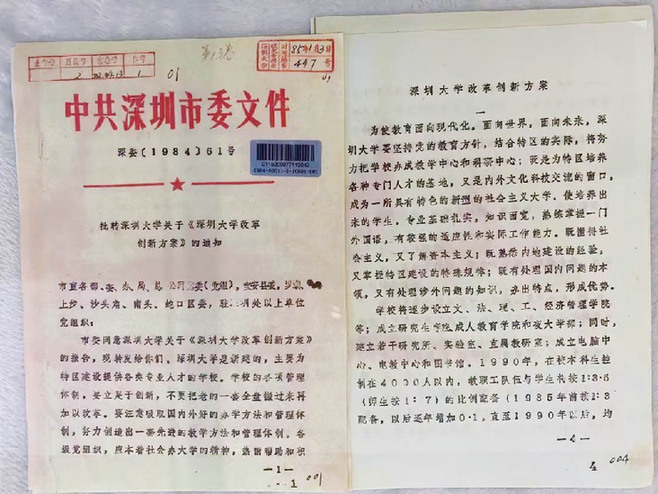 第13卷
85年1月3日
447号
01
中共深圳市委文件
深委〔1984〕61号
批转深圳大学关于《深圳大学改革
创新方案》的通知
市直各部、委、办、局、总公司党委（党组），宝安县委，罗湖、
上步、沙头角、南头、蛇口区委，驻深圳处以上单位
党组织：
市委同意深圳大学关于《深圳大学改革创新方案》
的报告，现转发给你们。深圳大学是新建的，主要为
特区建设提供各类专业人才的学校。学校的各项管理
体制，要立足于创新，不要把老的一套全盘搬过来再
加以改革。要注意吸取国内外好的办学方法和管理体
制，努力创造出一套先进的教学方法和管理体制。各
级党组织，应本着社会办大学的精神，热情帮助和积
—1—
001
深圳大学改革创新方案
一
为使教育面向现代化，面向世界，面向未来，深
圳大学要坚持党的教育方针，结合特区的实际，将努
力把学校办成教学中心和科研中心；既是为特区培养
各种专门人才的基地，又是内外文化科技交流的窗口，
成为一所具有特色的新型的社会主义大学。使培养出
来的学生，专业基础扎实，知识面宽，熟练掌握一门
外国语，有较强的适应性和实际工作能力。既懂得社
会主义，又了解资本主义；既熟悉内地建设的经验，
又掌握特区建设的特殊规律；既有处理国内问题的本
领，又有处理涉外问题的知识，办出特点，形成优势。
学校将逐步设立文、法、理、工、经济管理学院
等；成立研究生学院成人教育学院和夜大学部；同时，
建立若干研究所、实验室、直属教研室；成立电脑中
心、电教中心和图书馆。1990年，在校本科生控
制在4000人以内，教职工队伍与学生将按1:3·5
（师生按1:7）的比例配备（1985年前按1:3
配备，以后逐年增加0·1，直至1990年以后，均
—4—
004